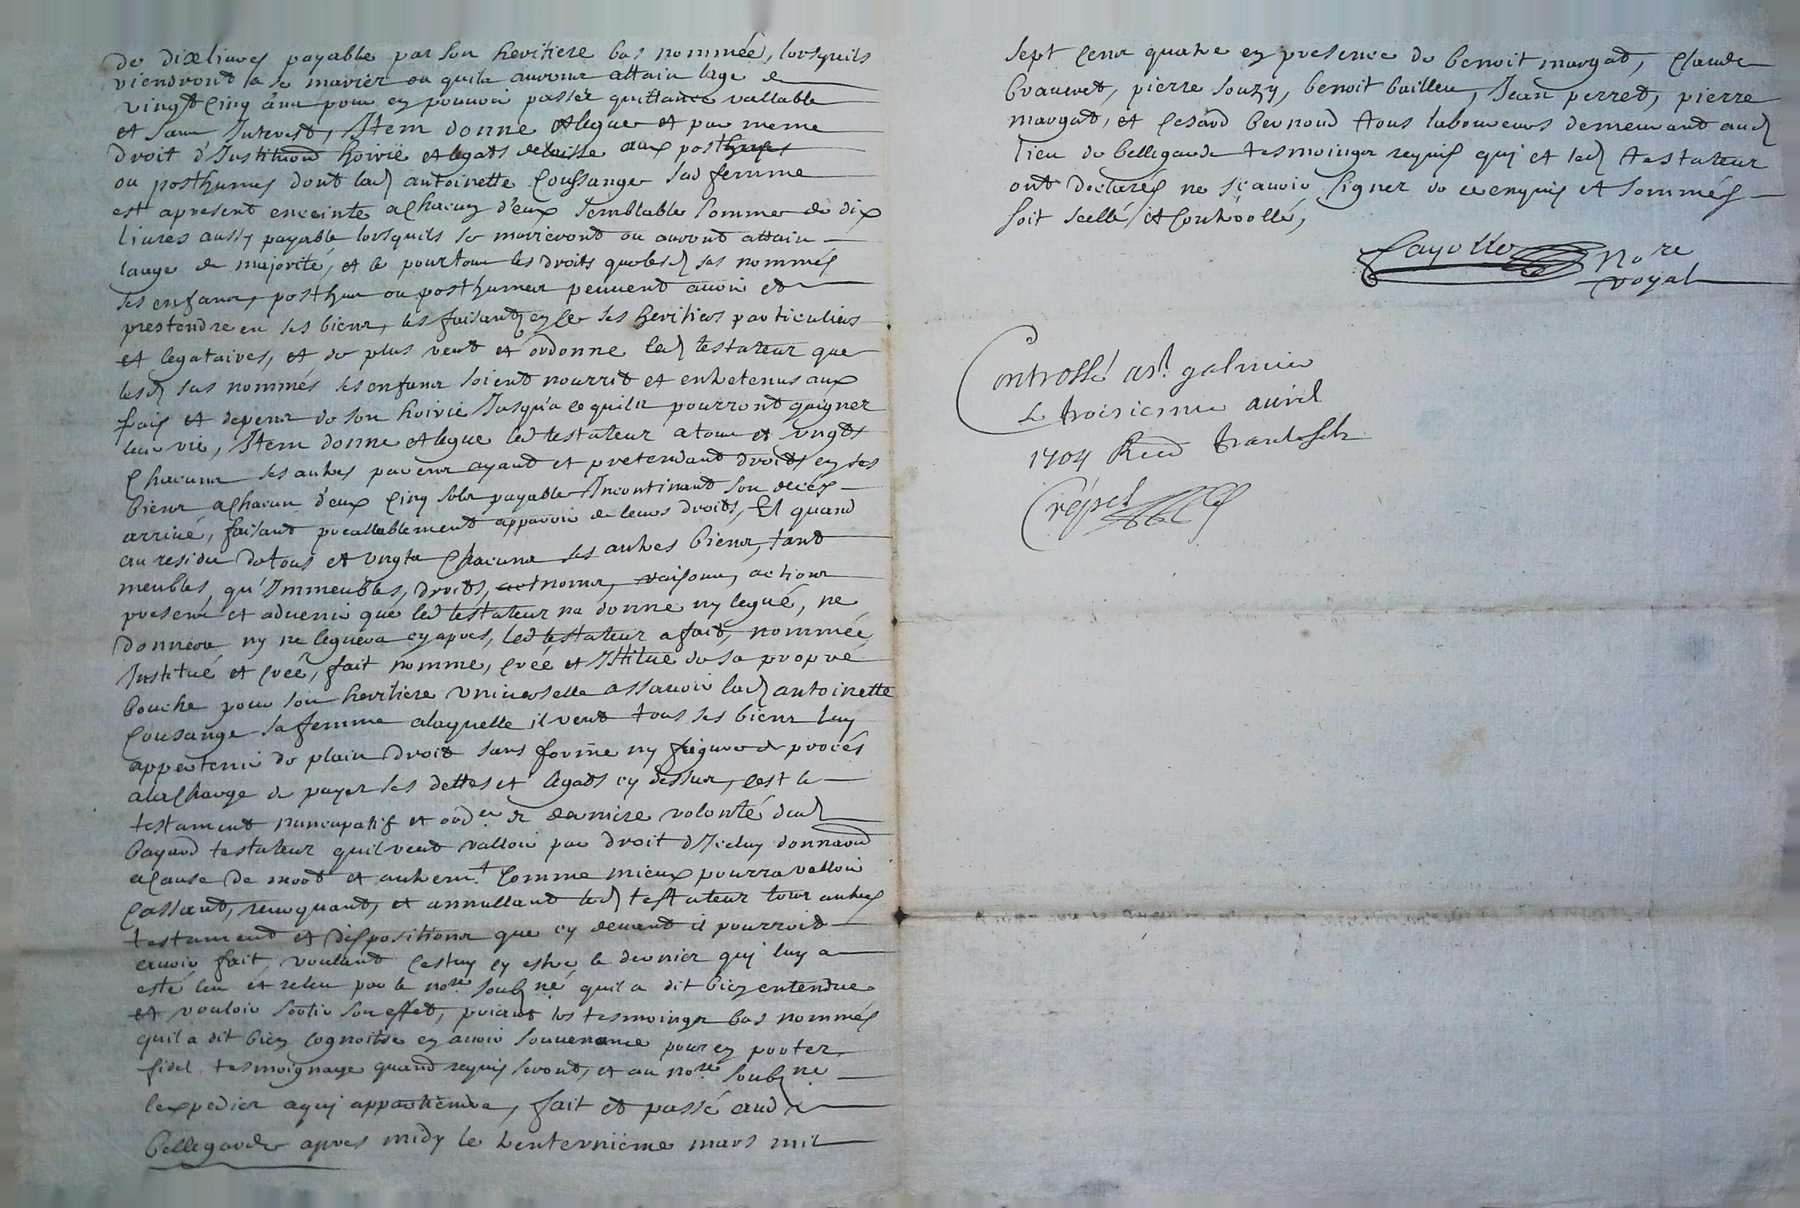 de dix livres payable par son heritiere bas nommée, lorsquils
viendront a se marier ou quils auront attain lage de
vingt cinq ans pour en pouvoir passer quittance vallable
et sans Interest, Item donne et legue et par meme
droit d'Institution hoirie et legats delaisse aux
ou posthumes dont lad antoinette Coussange sad femme
est apresent enceinte a chacun d'eux semblable somme de dix
livres aussy payable lorsquils se marieront ou auront attain
laage de majorité, et ce pour tous les droits que lesd sus nommés
ses enfans, posthume ou posthumes peuvent avoir et
prestendre en ses biens, les faisant en ce ses heritiers particuliers
et legataires, et de plus veut et ordonne led testateur que
lesd sus nommés ses enfans soient nourrit et entretenus aux
frais et depens de son hoirie Jusqu'a ce quils pourront gaigner
leur vie, Item donne et legue led testateur a tous et vngts
Chacuns ses autres parens ayant et pretendant droits en ses
biens a chacun d'eux cinq sols payable Incontinant son decés
arrivé, faisant preallablement apparoir de leurs droits, Et quand
au residu de tous et vngts chacuns ses autres biens, tant
meubles, qu'Immeubles, droits, noms, raisons, actions
presens et advenir que led testateur na donné ny legué, ne
donnera ny ne leguera cy apres, led testateur a fait, nommée
Institué et creé, fait nomme, creé et Istitue de sa propre
bouche pour son heritiere vniverselle assavoir lad antoinette
Cousange sa femme alaquelle il veut tous ses biens luy
appartenir de plain droit sans forme ny figure de procés
ala charge de payer ses dettes et legats cy dessus, cest le
testament nuncupatif et ordce de derniere volonté dud
bayard testateur quil veut valloir par droit
a Cause de mort et autremt Comme mieux pourra valloir
Cassant, revoquant, et annullant led testateur tous autres
testament et dispositions que cy devant il pourroit
avoir fait, voulant cestuy cy estre le dernier qui luy a
esté leu et releu par le nore soubzné quil a dit bien entendre
et vouloir sortir son effet, priant les tesmoings bas nommés
quil a dit bien cognoitre en avoir souvenance pour en porter
fidel tesmoignage quand requis seront, et au nore soubzné
lexpedier a qui appartiendra, fait et passé aud
Bellegarde apres midy le trenteunieme mars mil
sept cens quatre en presence de benoit margat, Claude
, pierre souzy, benoit bailleu, Jean perret, pierre
margat, et Cesard bernoud tous laboureurs demeurant aud
lieu de bellegarde tesmoings requis qui et led testateur
ont declarés ne sçavoir signer de ce enquis et sommés
soit scellé et controollé,
Cayotte Nore
royal
Controllé a st galmier
Le troisieme avril
1704 Receu trente sols
Crépet